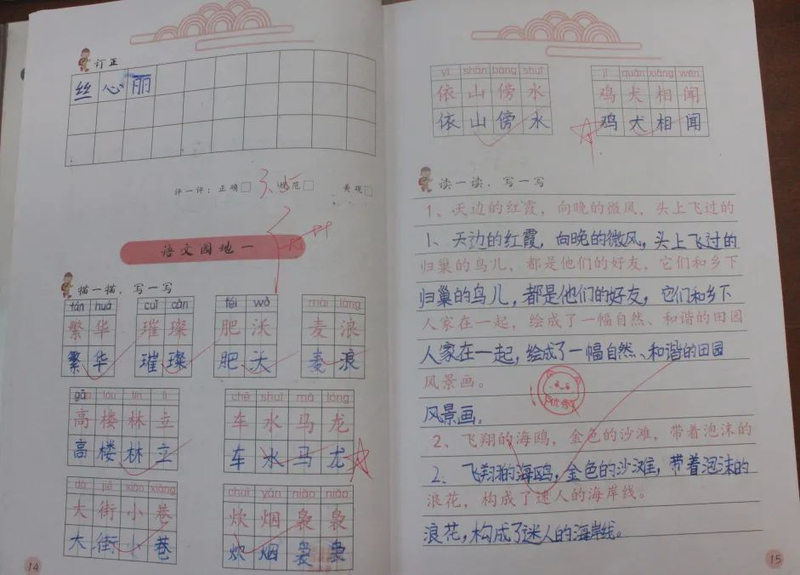 订正
丝心丽
评一评：正确 规范 美观
语文园地一
描一描，写一写
fán huá
繁华
繁华
cuǐ càn
璀璨
璀璨
féi wò
肥沃
肥沃
mài làng
麦浪
麦浪
gāo lóu lín lì
高楼林立
高楼林立
chē shuǐ mǎ lóng
车水马龙
车水马龙
dà jiē xiǎo xiàng
大街小巷
大街小巷
chuī yān niǎo niǎo
炊烟袅袅
炊烟袅袅
14
yī shān bàng shuǐ
依山傍水
依山傍水
jī quǎn xiāng wén
鸡犬相闻
鸡犬相闻
读一读，写一写
1、天边的红霞，向晚的微风，头上飞过的
1、天边的红霞，向晚的微风，头上飞过的
归巢的鸟儿，都是他们的好友，它们和乡下
归巢的鸟儿，都是他们的好友，它们和乡下
人家在一起，绘成了一幅自然、和谐的田园
人家在一起，绘成了一幅自然、和谐的田园
风景画。
风景画。
2、飞翔的海鸥，金色的沙滩，带着泡沫的
2、飞翔的海鸥，金色的沙滩，带着泡沫的
浪花，构成了迷人的海岸线。
浪花，构成了迷人的海岸线。
15